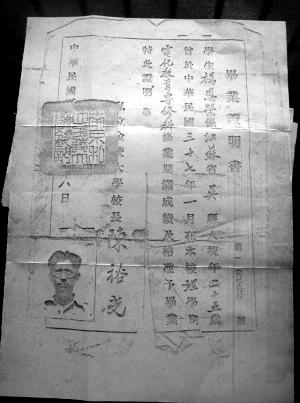 畢業證明書
第 號
學生楊 江蘇省吳縣人現年二十五歲
曾於中華民國三十七年一月在本校理學院
電化教育專修科修業期滿成績及格准予畢業
特此證明
私立金陵大學校長陳裕光
中華民國 八日